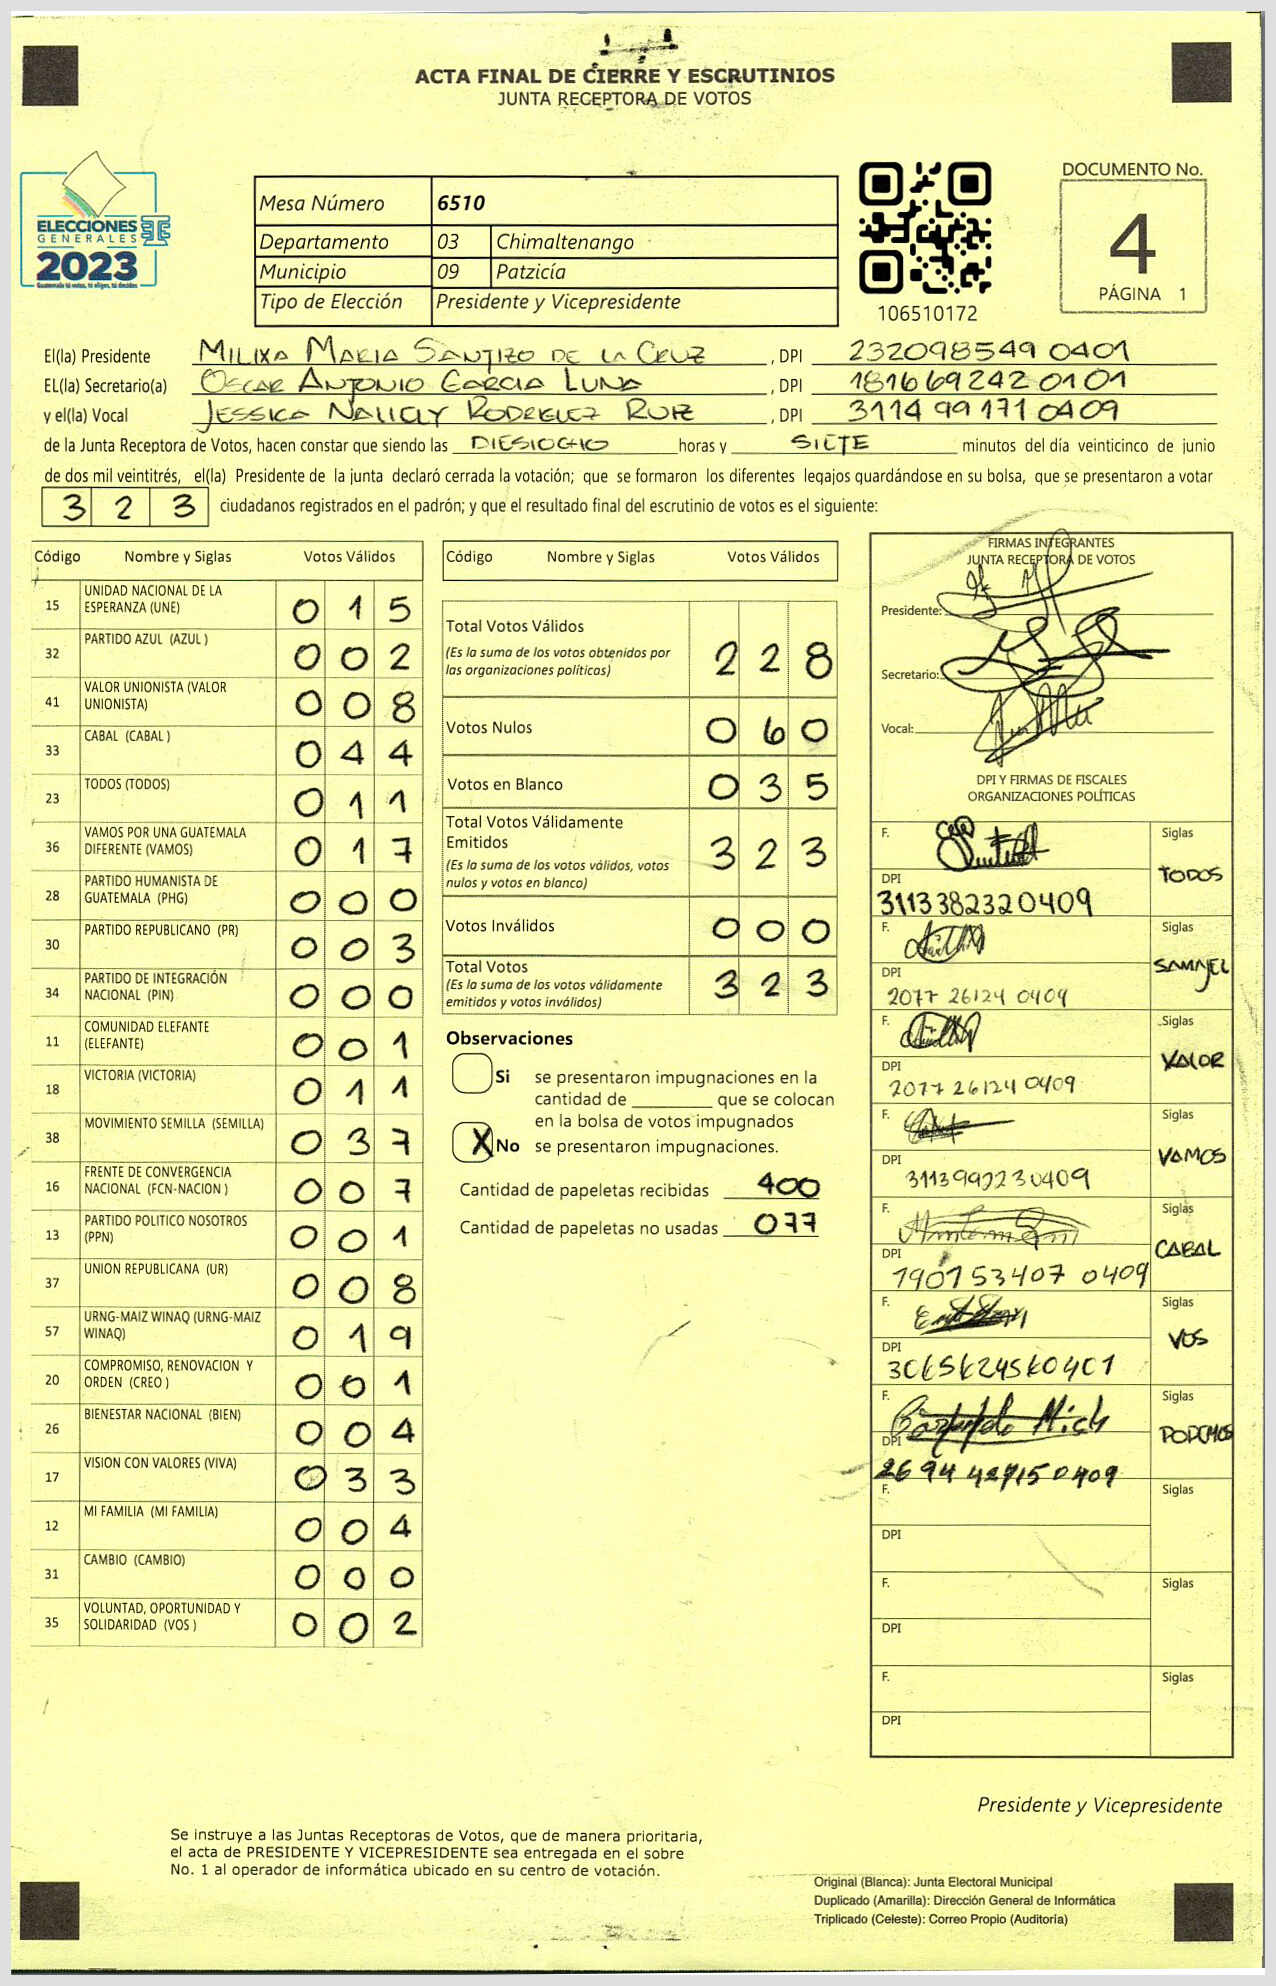 ACTA FINAL DE CIERRE Y ESCRUTINIOS
JUNTA RECEPTORA DE VOTOS
ELECCIONES
GENERALES
2023
Guatemala tú votas, tú eliges, tú decides
Mesa Número 6510
Departamento 03 Chimaltenango
Municipio 09 Patzicía
Tipo de Elección Presidente y Vicepresidente
106510172
DOCUMENTO No.
4
PÁGINA 1
El(la) Presidente MILIXA MARIA SANTIZO DE LA CRUZ, DPI 232098549 0401
EL(la) Secretario(a) OSCAR ANTONIO GARCIA LUNA, DPI 181669242 0101
y el(la) Vocal JESSICA RODRIGUEZ RUIZ, DPI 3114 99171 0409
de la Junta Receptora de Votos, hacen constar que siendo las DIESIOCHO horas y SIETE minutos del día veinticinco de junio
de dos mil veintitrés, el(la) Presidente de la junta declaró cerrada la votación; que se formaron los diferentes legajos guardándose en su bolsa, que se presentaron a votar
3 2 3 ciudadanos registrados en el padrón; y que el resultado final del escrutinio de votos es el siguiente:
Código Nombre y Siglas Votos Válidos
15 UNIDAD NACIONAL DE LA ESPERANZA (UNE) 0 1 5
32 PARTIDO AZUL (AZUL ) 0 0 2
41 VALOR UNIONISTA (VALOR UNIONISTA) 0 0 8
33 CABAL (CABAL ) 0 4 4
23 TODOS (TODOS) 0 1 1
36 VAMOS POR UNA GUATEMALA DIFERENTE (VAMOS) 0 1 7
28 PARTIDO HUMANISTA DE GUATEMALA (PHG) 0 0 0
30 PARTIDO REPUBLICANO (PR) 0 0 3
34 PARTIDO DE INTEGRACIÓN NACIONAL (PIN) 0 0 0
11 COMUNIDAD ELEFANTE (ELEFANTE) 0 0 1
18 VICTORIA (VICTORIA) 0 1 1
38 MOVIMIENTO SEMILLA (SEMILLA) 0 3 7
16 FRENTE DE CONVERGENCIA NACIONAL (FCN-NACION ) 0 0 7
13 PARTIDO POLITICO NOSOTROS (PPN) 0 0 1
37 UNION REPUBLICANA (UR) 0 0 8
57 URNG-MAIZ WINAQ (URNG-MAIZ WINAQ) 0 1 9
20 COMPROMISO, RENOVACION Y ORDEN (CREO ) 0 0 1
26 BIENESTAR NACIONAL (BIEN) 0 0 4
17 VISION CON VALORES (VIVA) 0 3 3
12 MI FAMILIA (MI FAMILIA) 0 0 4
31 CAMBIO (CAMBIO) 0 0 0
35 VOLUNTAD, OPORTUNIDAD Y SOLIDARIDAD (VOS ) 0 0 2
Código Nombre y Siglas Votos Válidos
Total Votos Válidos
(Es la suma de los votos obtenidos por
las organizaciones políticas) 2 2 8
Votos Nulos 0 6 0
Votos en Blanco 0 3 5
Total Votos Válidamente
Emitidos
(Es la suma de los votos válidos, votos
nulos y votos en blanco) 3 2 3
Votos Inválidos 0 0 0
Total Votos
(Es la suma de los votos válidamente
emitidos y votos inválidos) 3 2 3
Observaciones
Si se presentaron impugnaciones en la
cantidad de ________ que se colocan
en la bolsa de votos impugnados
X No se presentaron impugnaciones.
Cantidad de papeletas recibidas 400
Cantidad de papeletas no usadas 077
FIRMAS INTEGRANTES
JUNTA RECEPTORA DE VOTOS
Presidente:
Secretario:
Vocal:
DPI Y FIRMAS DE FISCALES
ORGANIZACIONES POLÍTICAS
F. Siglas
TODOS
DPI
3113382320409
F. Siglas
SAMAJEL
DPI
2077 26124 0409
F. Siglas
VALOR
DPI
2077 26124 0409
F. Siglas
VAMOS
DPI
3113992230409
F. Siglas
CABAL
DPI
1901 53407 0409
F. Siglas
VOS
DPI
F. Siglas
PODEMOS
DPI
2694 42715 0409
F. Siglas
DPI
F. Siglas
DPI
F. Siglas
DPI
Presidente y Vicepresidente
Se instruye a las Juntas Receptoras de Votos, que de manera prioritaria,
el acta de PRESIDENTE Y VICEPRESIDENTE sea entregada en el sobre
No. 1 al operador de informática ubicado en su centro de votación.
Original (Blanca): Junta Electoral Municipal
Duplicado (Amarilla): Dirección General de Informática
Triplicado (Celeste): Correo Propio (Auditoría)